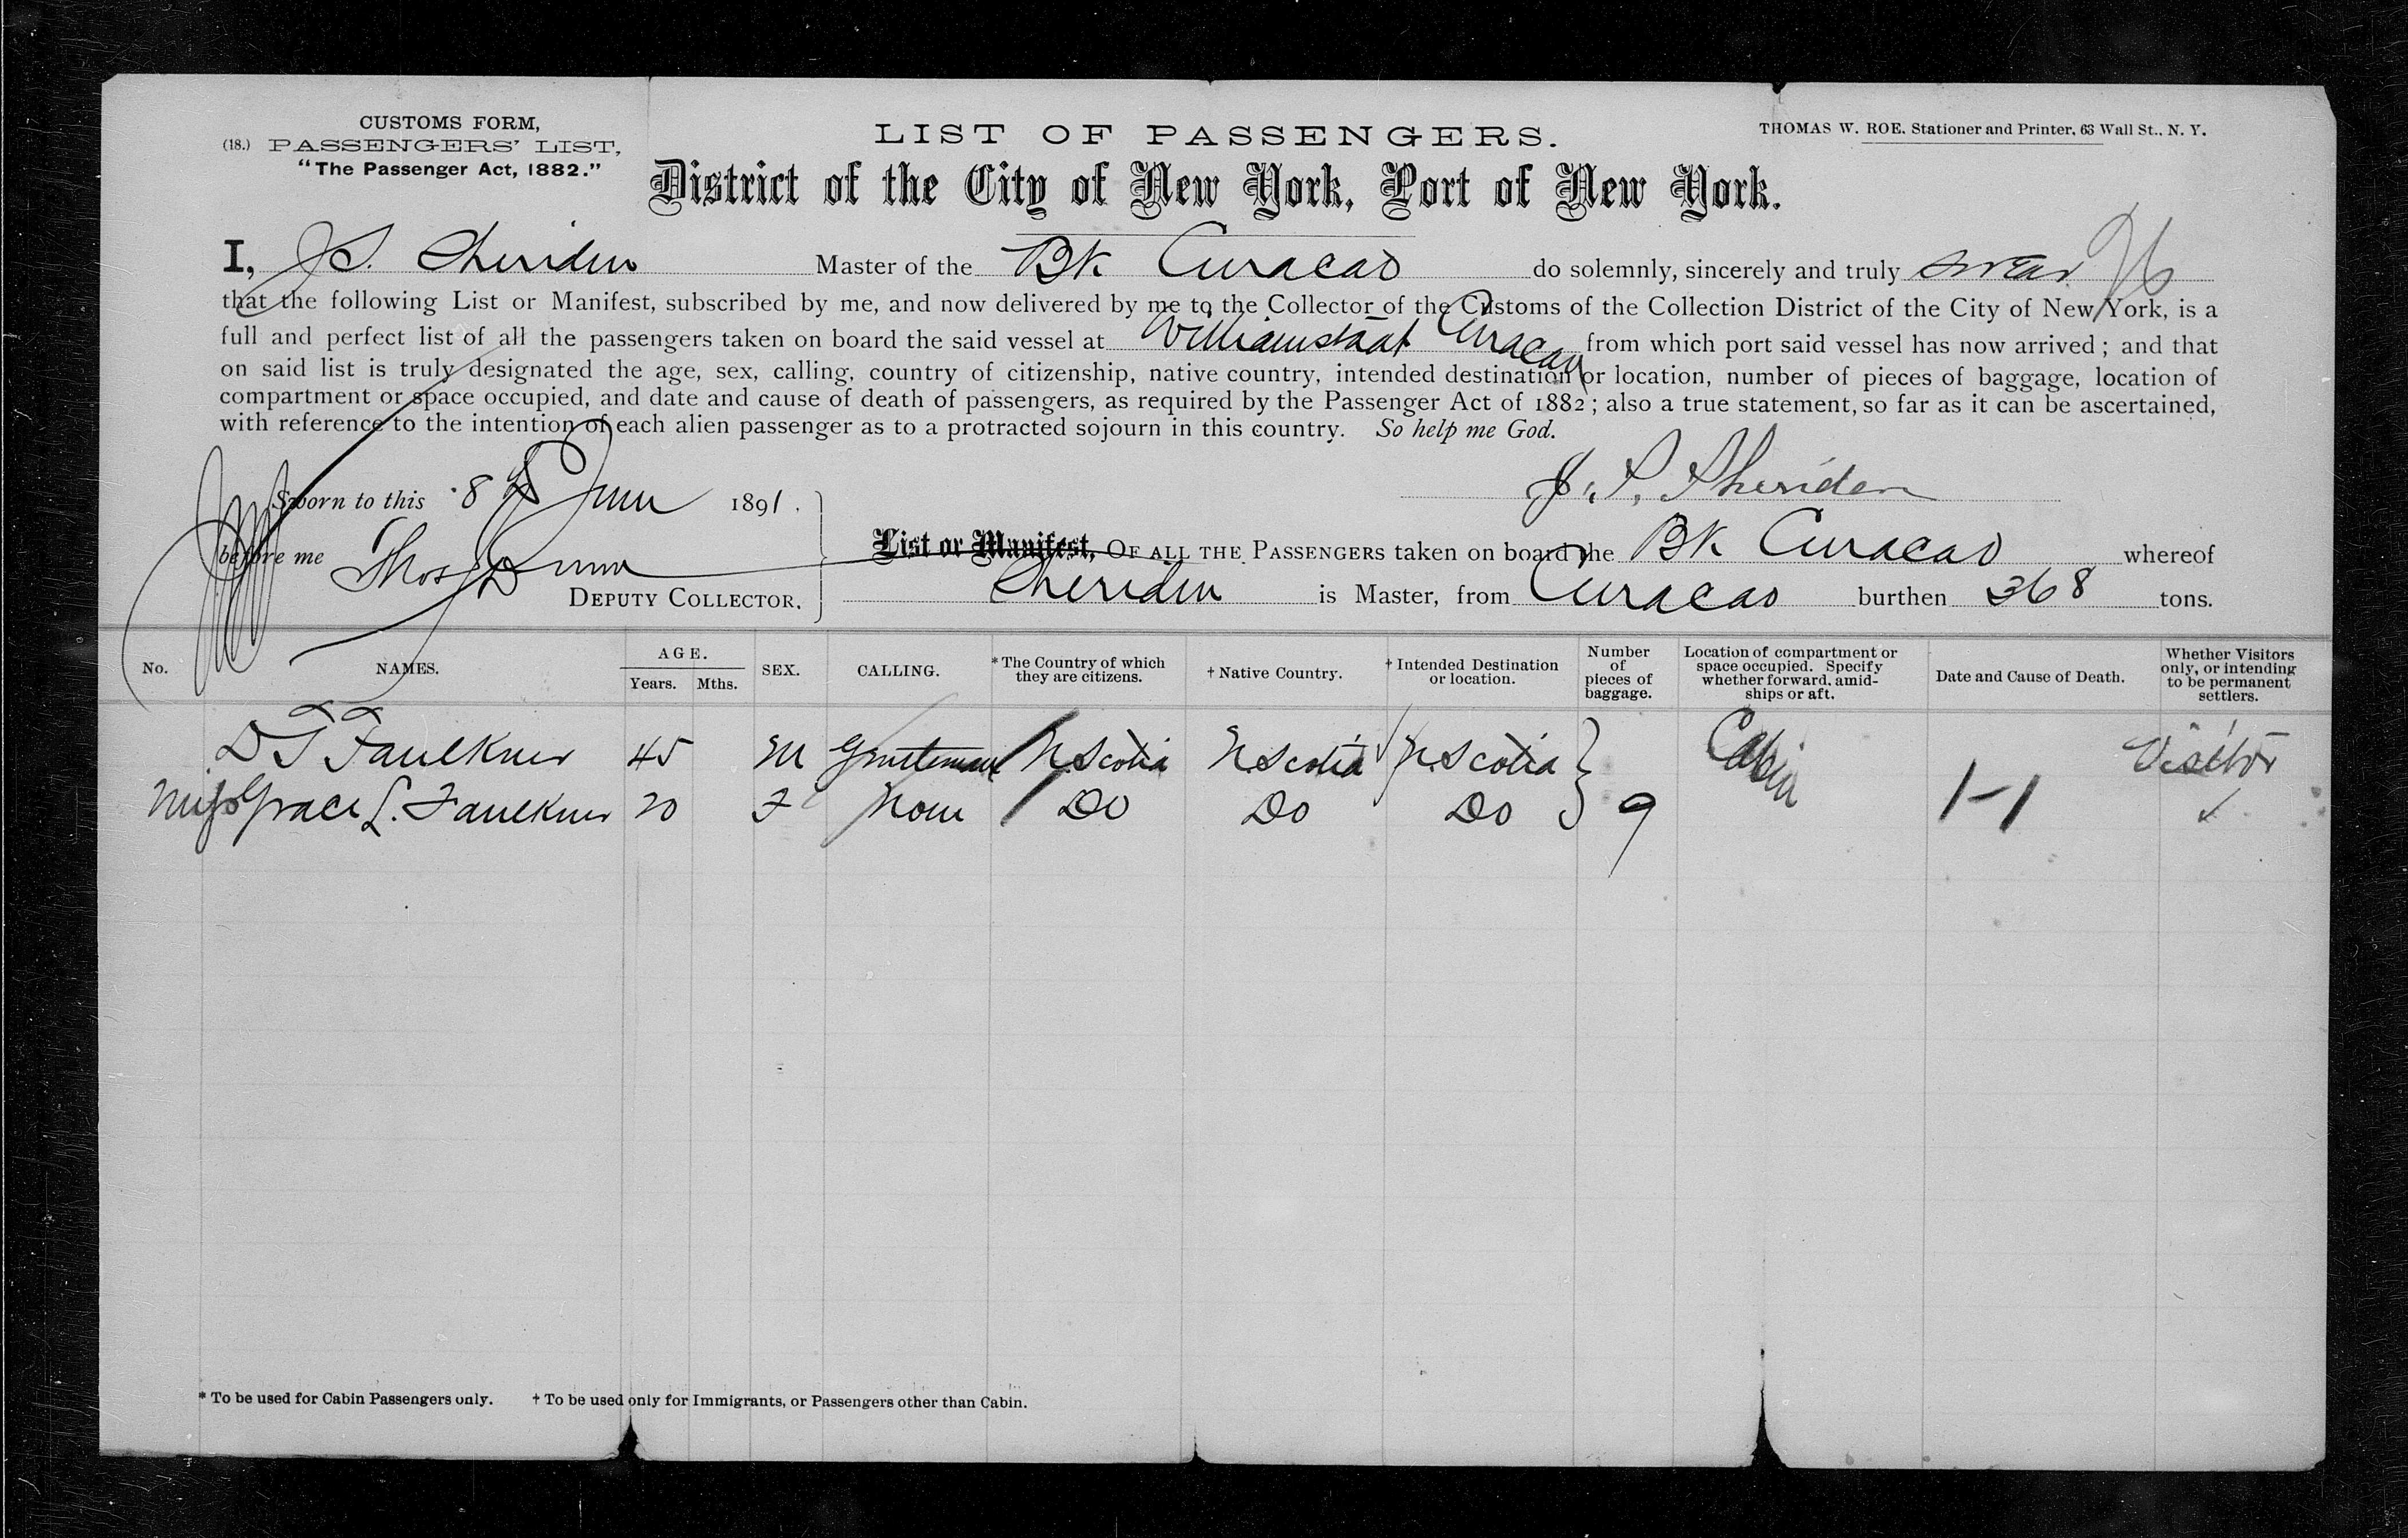 CUSTOMS FORM,
(18.) PASSENGERS' LIST,
"The Passenger Act, 1882."
LIST OF PASSENGERS.
THOMAS W. ROE. Stationer and Printer, 63 Wall St., N. Y.
District of the City of New York, Port of New York.
I, J S. Sheriden Master of the Bk Curacao do solemnly, sincerely and truly swear
that the following List or Manifest, subscribed by me, and now delivered by me to the Collector of the Customs of the Collection District of the City of New York, is a
full and perfect list of all the passengers taken on board the said vessel at Williamstadt Curacao from which port said vessel has now arrived; and that
on said list is truly designated the age, sex, calling, country of citizenship, native country, intended destination or location, number of pieces of baggage, location of
compartment or space occupied, and date and cause of death of passengers, as required by the Passenger Act of 1882; also a true statement, so far as it can be ascertained,
with reference to the intention of each alien passenger as to a protracted sojourn in this country. So help me God.
J. S. Sheriden
Sworn to this 8th June 1891.
before me Thos Dunn
DEPUTY COLLECTOR.
List or Manifest, OF ALL THE PASSENGERS taken on board the Bk Curacao whereof
Sheriden is Master, from Curacao burthen 368 tons.
No. NAMES. AGE. Years. Mths. SEX. CALLING. *The Country of which they are citizens. †Native Country. †Intended Destination or location. Number of pieces of baggage. Location of compartment or space occupied. Specify whether forward, amidships or aft. Date and Cause of Death. Whether Visitors only, or intending to be permanent settlers.
D F Faulkner 45 M Gentleman N. Scotia N. Scotia N. Scotia Cabin Visitor
Miss Grace L. Faulkner 20 F None Do Do Do 9 1-1
* To be used for Cabin Passengers only. † To be used only for Immigrants, or Passengers other than Cabin.